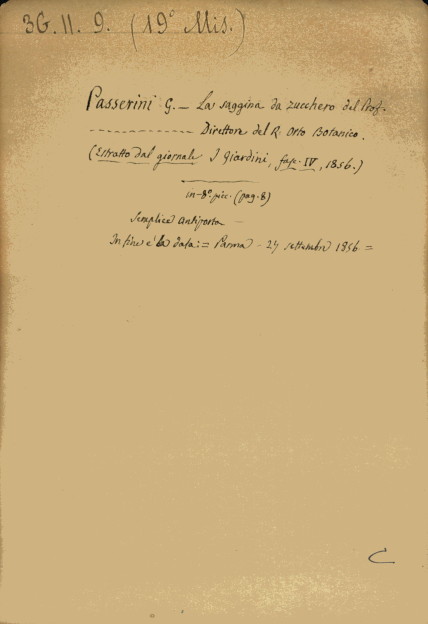 3G. 11. 9. (19º Mis.)
Passerini G. — La saggina da zucchero del Prof.
------------- Direttore del R. Orto Botanico.
(Estratto dal giornale I Giardini, fasc. IV, 1856.)
in-8º pic. (pag. 8)
Semplice antiporta
In fine è la data: = Parma - 27 settembre 1856 =
C